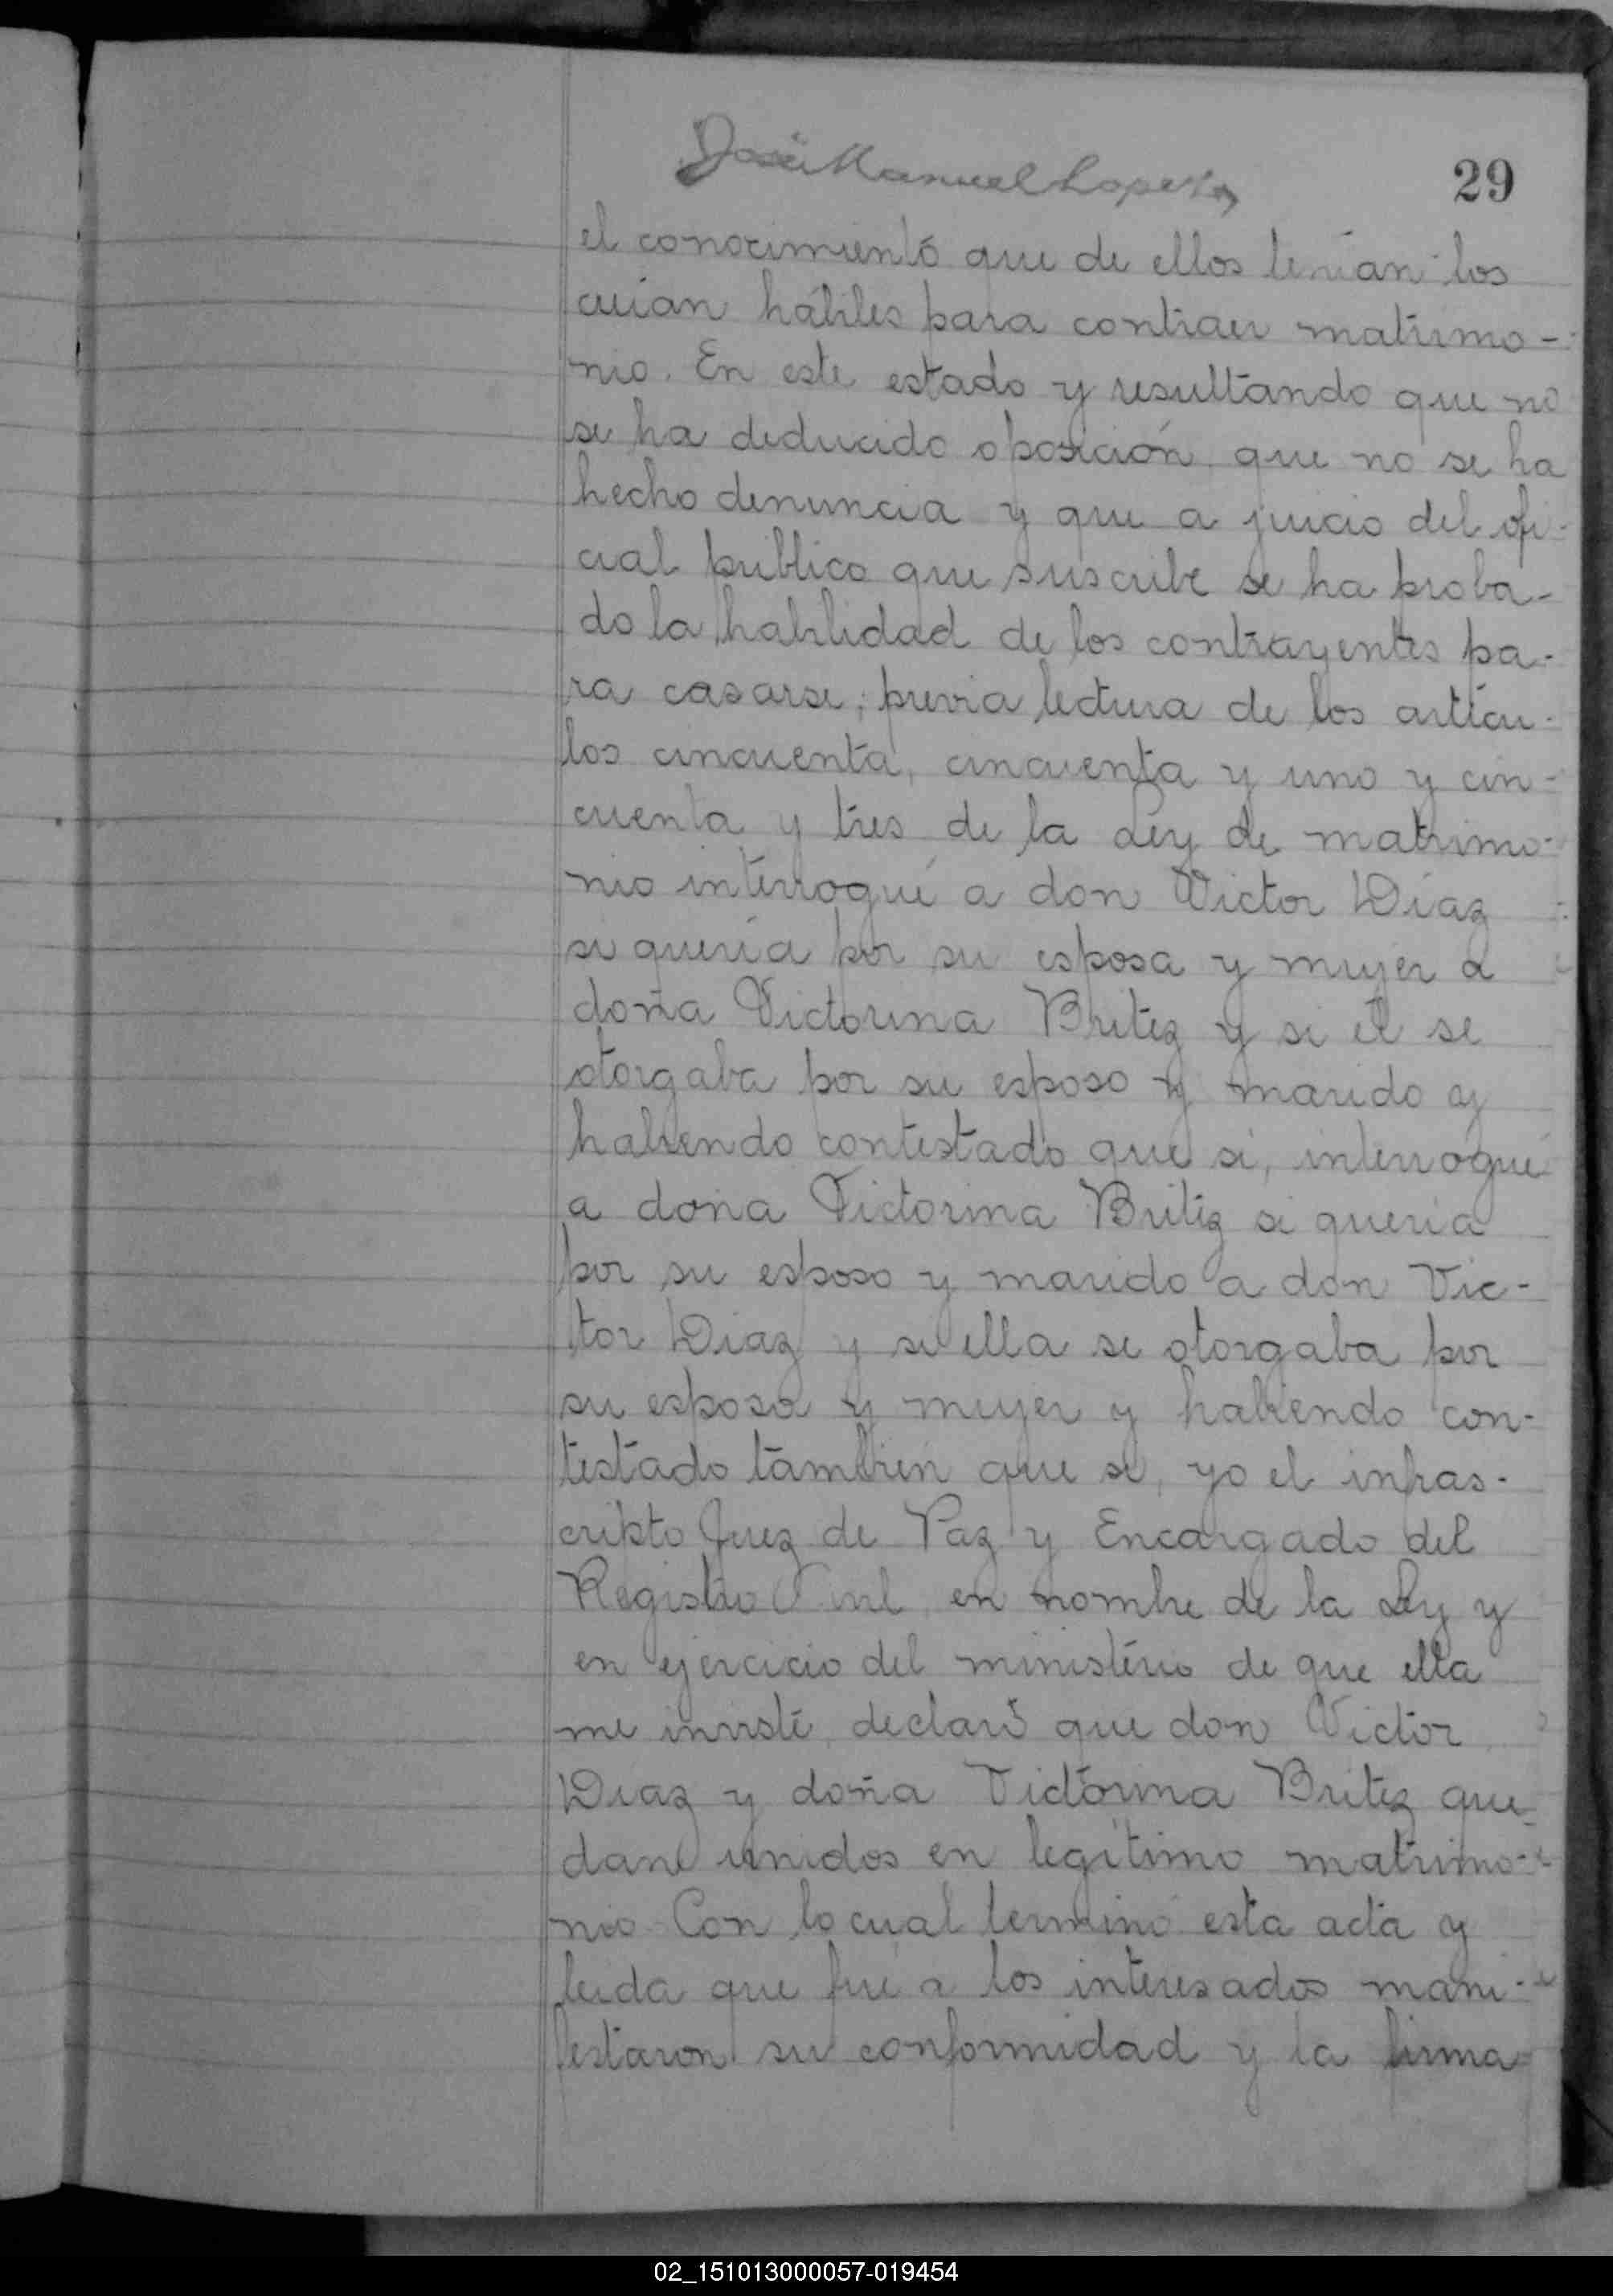 José Manuel Lopez
29
el conocimientó que de ellos tenían los
creían hábiles para contraer matrimo-
nio. En este estado y resultando que no
se ha deducido oposición, que no se ha
hecho denuncia y que a juicio del ofi-
cial público que suscribe se ha proba-
do la habilidad de los contrayentes pa-
ra casarse; previa lectura de los artícu-
los cincuenta, cincuenta y uno y cin-
cuenta y tres de la Ley de matrimo-
nio interrogué a don Victor Díaz
si quería por su esposa y mujer a
doña Victorina Britez y si él se
otorgaba por su esposo y marido y
habiendo contestado que si, interrogué
a doña Victorina Britez si quería
por su esposo y marido a don Vic-
tor Diaz y si ella se otorgaba por
su esposa y mujer y habiendo con-
testado también que si, yo el infras-
cripto Juez de Paz y Encargado del
Registro Civil en nombre de la Ley y
en ejercicio del ministério de que ella
me inviste, declaró que don Victor
Diaz y doña Victorina Britez que
dan unidos en legítimo matrimo-
nio. Con lo cual terminó esta acta y
leida que fué a los interesados mani-
festaron su conformidad y la firma
02_151013000057-019454